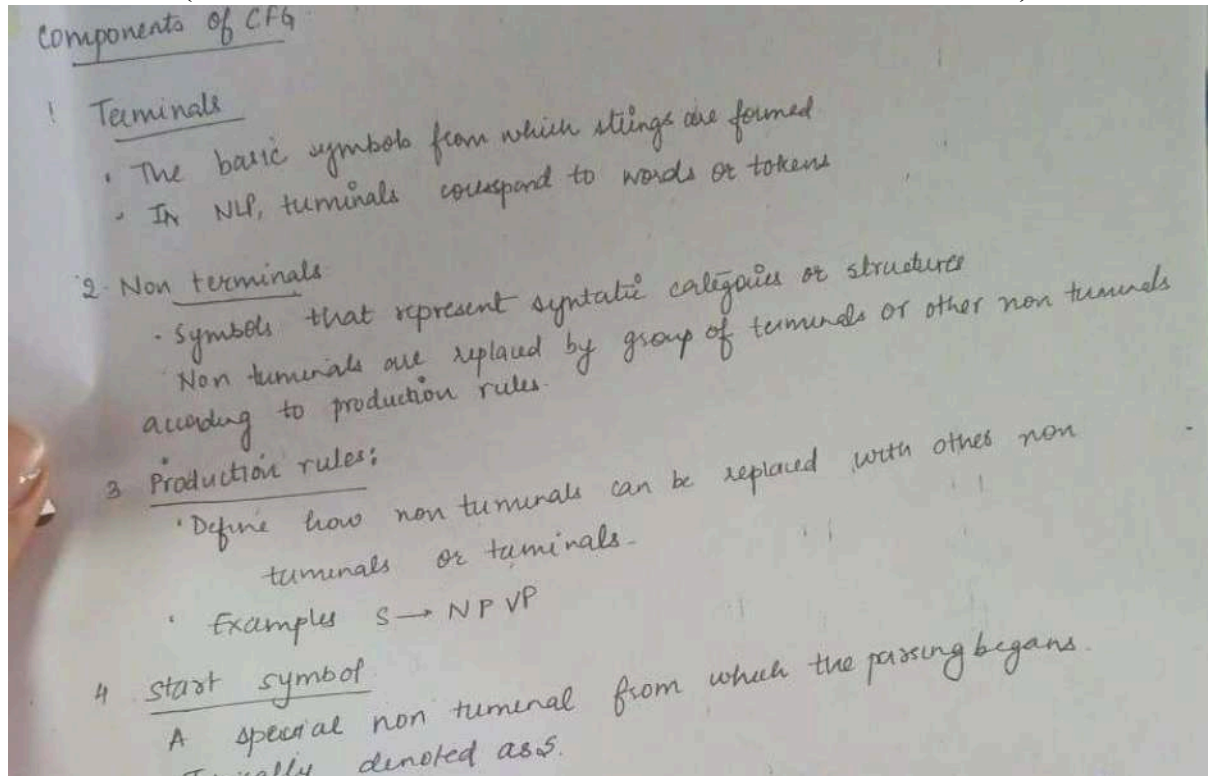 Components of CFG
1 Terminals
• The basic symbols from which strings are formed
• In NLP, terminals correspond to words or tokens
2. Non terminals
• Symbols that represent syntatic categories or structures
Non terminals are replaced by group of terminals or other non terminals
according to production rules.
3 Production rules:
• Define how non terminals can be replaced with other non
terminals or terminals.
• Examples S → NP VP
4 start symbol
A special non terminal from which the parsing begans.
denoted as S.